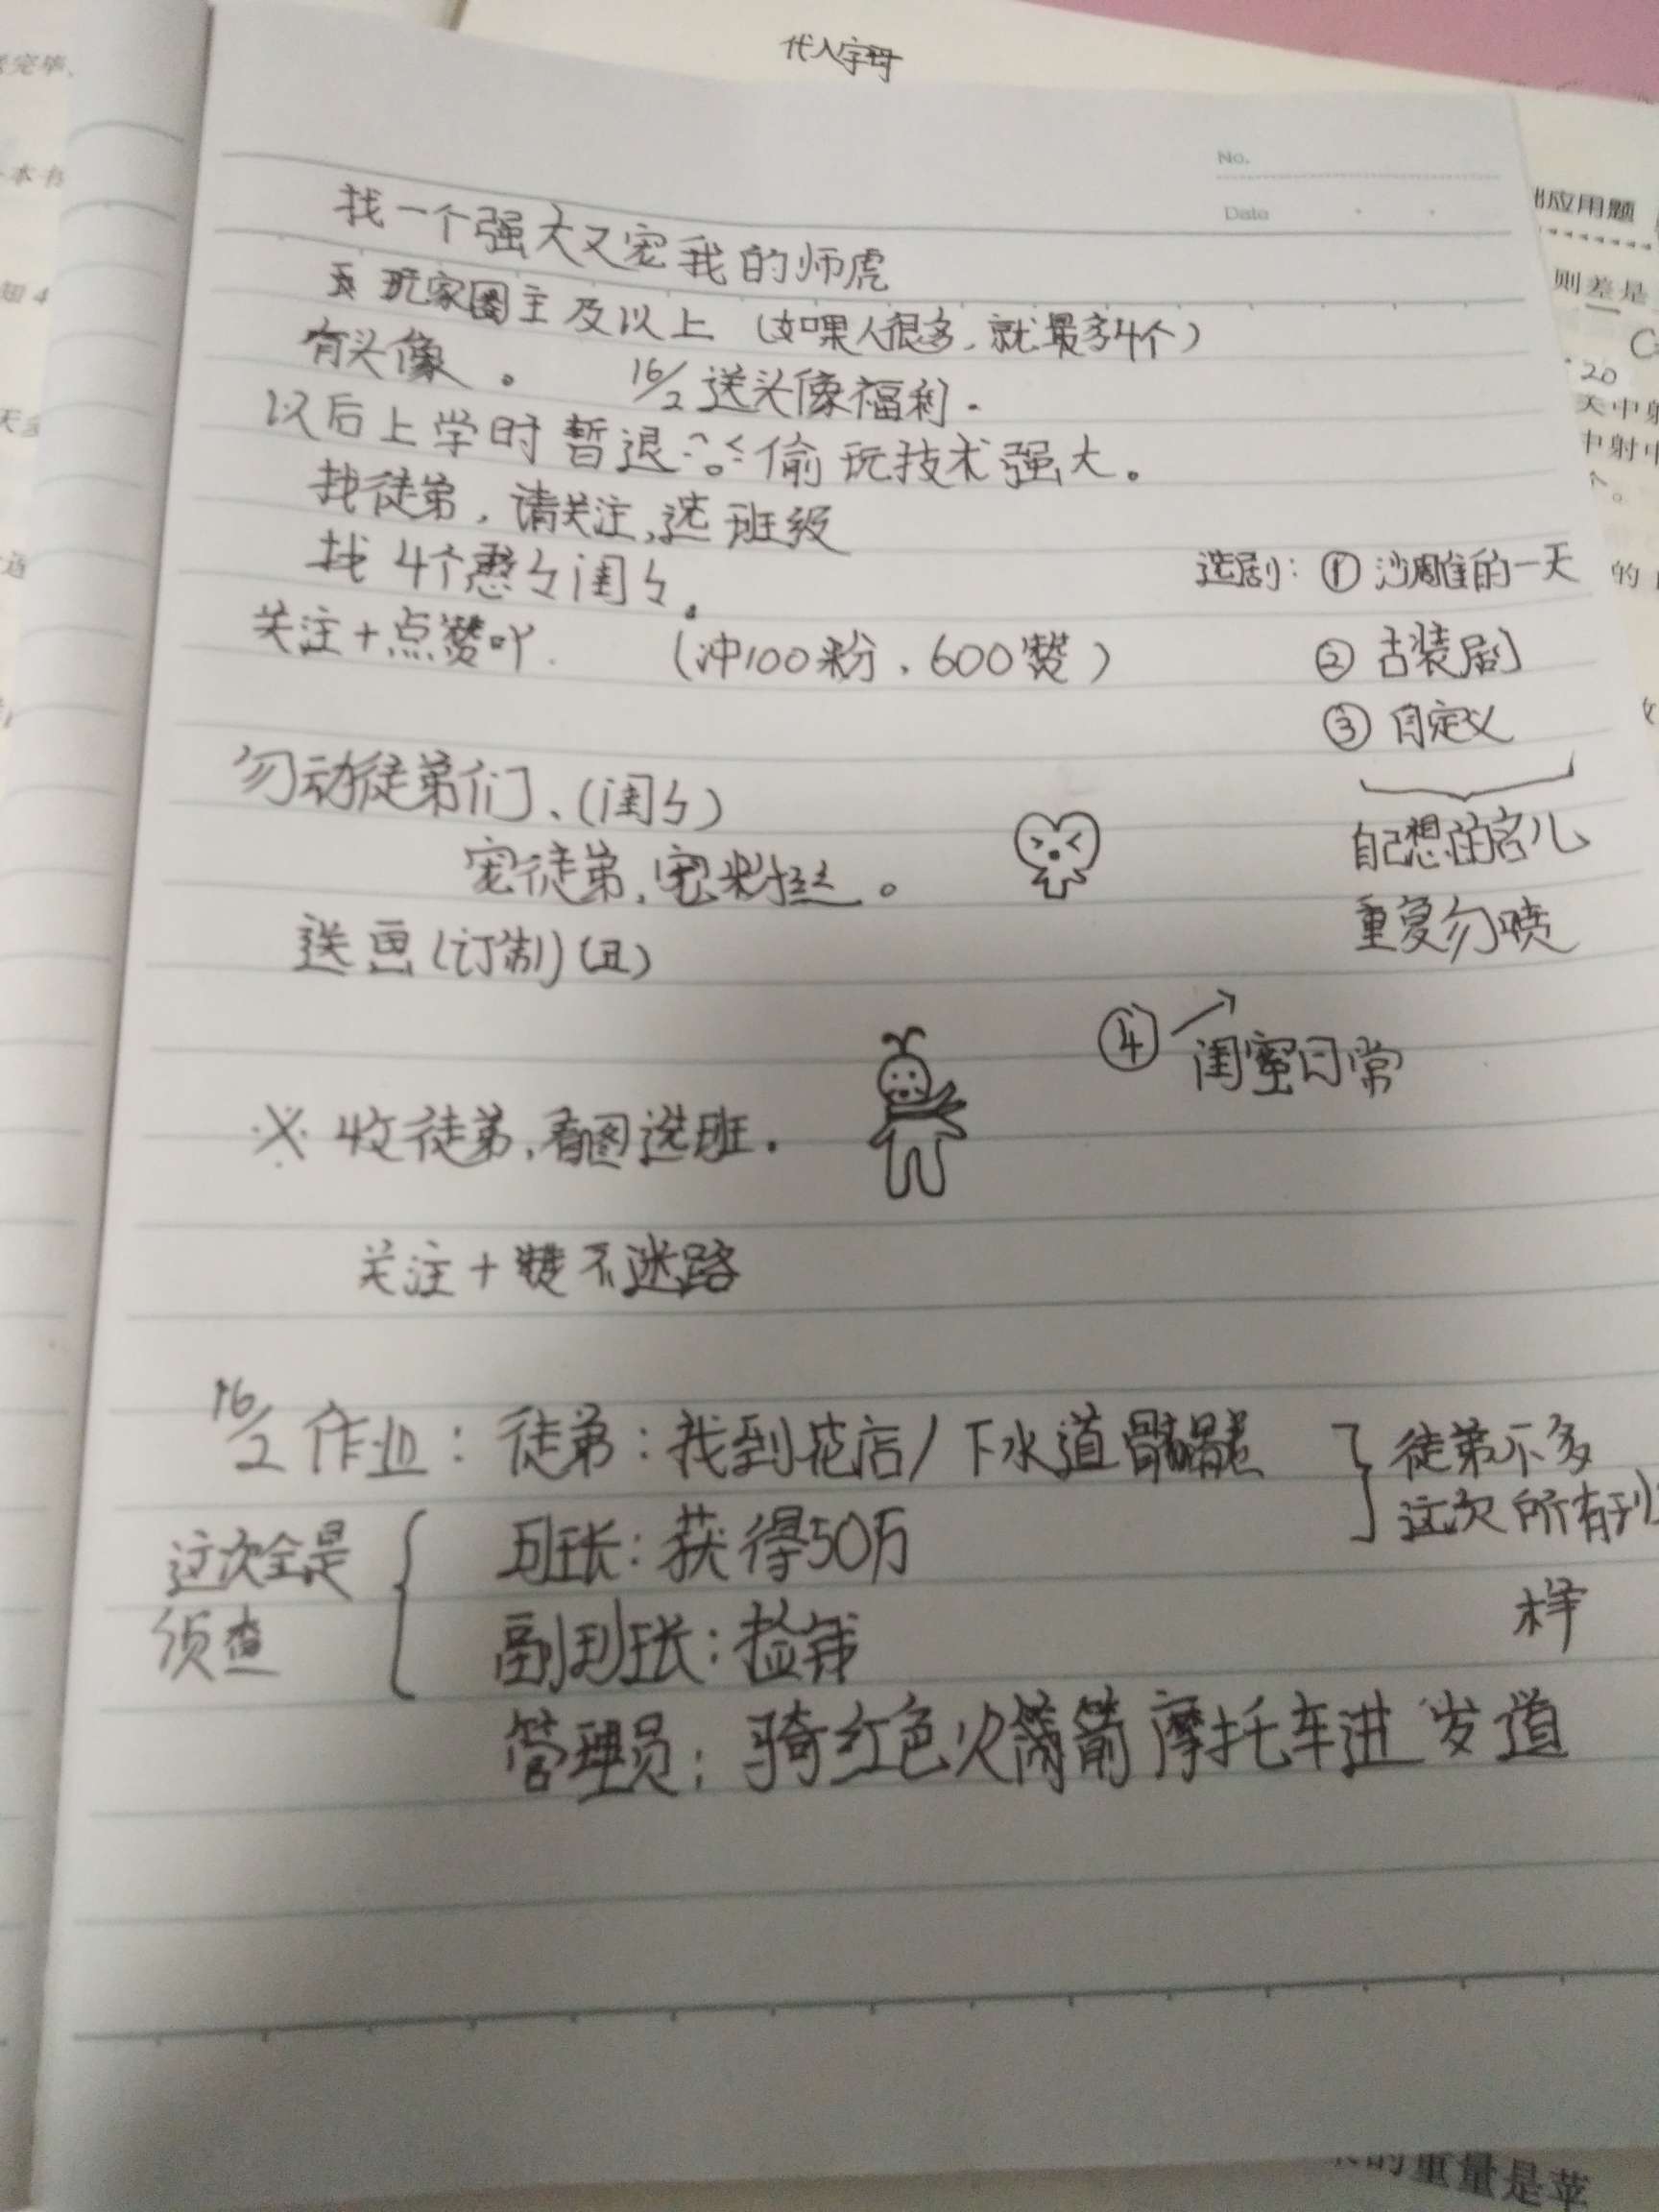 代入字母
No.
Date
找一个强大又宠我的师虎
玩家圈主及以上 (如果人很多,就最多4个)
有头像。 16/2 送头像福利.
以后上学时暂退 偷玩技术强大。
找徒弟,请关注,选班级
找4个憨々闺々。
关注+点赞吖. (冲100粉,600赞)
选剧: ① 沙雕的一天
② 古装剧
③ 自定义
自己想的名儿
重复勿喷
勿动徒弟们、(闺々)
宠徒弟,宠粉丝。
送画(订制)(丑)
④ 闺蜜日常
※ 收徒弟,看图选班.
关注+赞不迷路
16/2 作业: 徒弟:找到花店/下水道骷髅
徒弟不多
这次所有
样
这次全是
侦查
班长:获得50万
副班长:捡钱
管理员:骑红色火箭摩托车进 道
完毕、
本书
知4
应用题
则差是
20
天中射
中射中
个。
的
的重量是苹